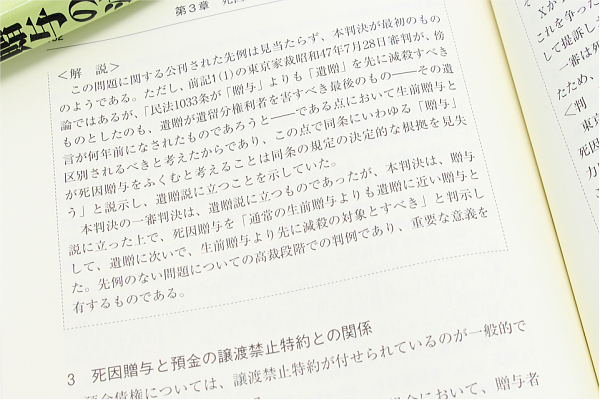 贈与の
第3章 死因
<解 説>
この問題に関する公刊された先例は見当たらず、本判決が最初のもの
のようである。ただし、前記1(1)の東京家裁昭和47年7月28日審判が、傍
論ではあるが、「民法1033条が「贈与」よりも「遺贈」を先に減殺すべき
ものとしたのも、遺贈が遺留分権利者を害すべき最後のもの――その遺
言が何年前になされたものであろうと――である点において生前贈与と
区別されるべきと考えたからであり、この点で同条にいわゆる「贈与」
が死因贈与をふくむと考えることは同条の規定の決定的な根拠を見失
う」と説示し、遺贈説に立つことを示していた。
本判決の一審判決は、遺贈説に立つものであったが、本判決は、贈与
説に立った上で、死因贈与を「通常の生前贈与よりも遺贈に近い贈与と
して、遺贈に次いで、生前贈与より先に減殺の対象とすべき」と判示し
た。先例のない問題についての高裁段階での判例であり、重要な意義を
有するものである。
3 死因贈与と預金の譲渡禁止特約との関係
預金債権については、譲渡禁止特約が付せられているのが一般的で
において、贈与者
Xが
これを争った
して提訴し
審は死
たため、
<判
東京
死因
力